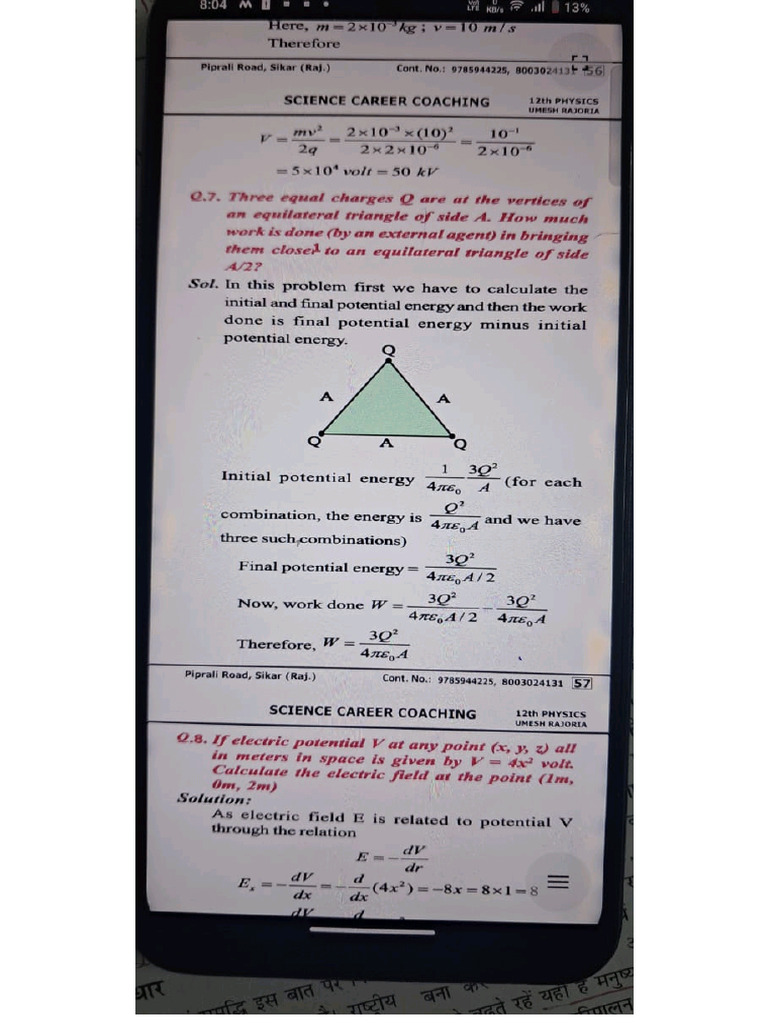 8:04 M
KB/s 13%
Here, m = 2×10⁻³ kg ; v = 10 m / s
Therefore
Piprali Road, Sikar (Raj.) Cont. No.: 9785944225, 8003024131 56
SCIENCE CAREER COACHING 12th PHYSICS
UMESH RAJORIA
V = mv²/2q = 2×10⁻³×(10)²/2×2×10⁻⁶ = 10⁻¹/2×10⁻⁶
= 5×10⁴ volt = 50 kV
Q.7. Three equal charges Q are at the vertices of
an equilateral triangle of side A. How much
work is done (by an external agent) in bringing
them closer to an equilateral triangle of side
A/2?
Sol. In this problem first we have to calculate the
initial and final potential energy and then the work
done is final potential energy minus initial
potential energy.
Q
A A
Q A Q
Initial potential energy 1/4πε₀ 3Q²/A (for each
combination, the energy is Q²/4πε₀A and we have
three such combinations)
Final potential energy = 3Q²/4πε₀A/2
Now, work done W = 3Q²/4πε₀A/2 − 3Q²/4πε₀A
Therefore, W = 3Q²/4πε₀A
Piprali Road, Sikar (Raj.) Cont. No.: 9785944225, 8003024131 57
SCIENCE CAREER COACHING 12th PHYSICS
UMESH RAJORIA
Q.8. If electric potential V at any point (x, y, z) all
in meters in space is given by V = 4x² volt.
Calculate the electric field at the point (1m,
0m, 2m)
Solution:
As electric field E is related to potential V
through the relation
E = −dV/dr
Eₓ = −dV/dx = −d/dx(4x²) = −8x = 8×1 = 8
dV d
इस बात पर
राष्ट्रीय बना
रहें यही है मनुष्य